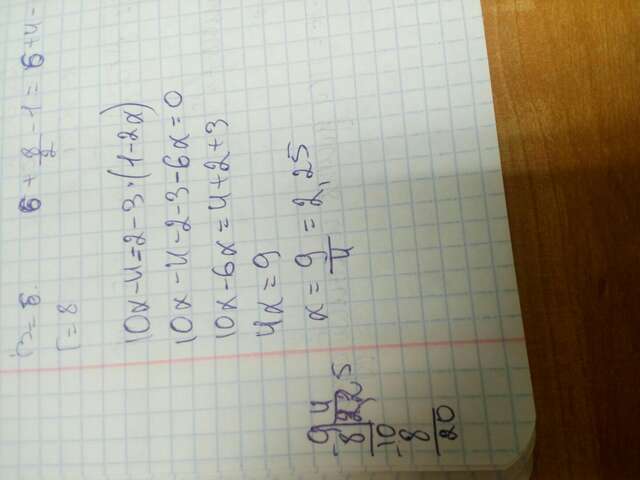 = 5. 6 + 8/2 - 1 = 6 + 4 -
= 8
10x-4=2-3·(1-2x)
10x-4-2-3-6x=0
10x-6x=4+2+3
4x=9
x=9/4=2,25
9 4
8 2,25
10
8
20